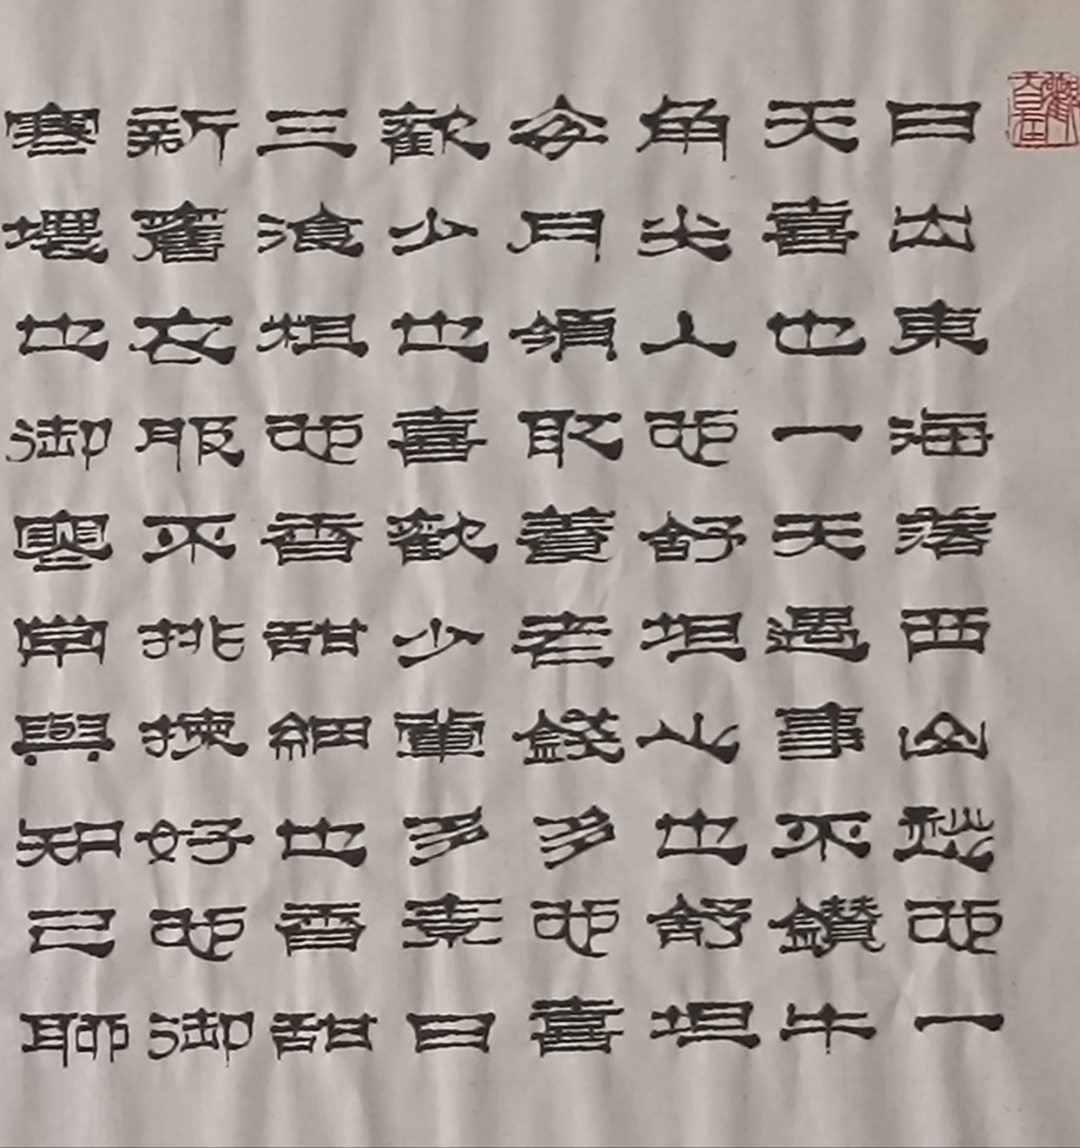 日出東海落西山愁也一
天喜也一天遇事不鑽牛
角尖人也舒坦心也舒坦
每月領取養老錢多也喜
歡少也喜歡少葷多素日
三湌粗也香甜細也香甜
新舊衣服不挑揀好也御
寒也御寒常與知己聊